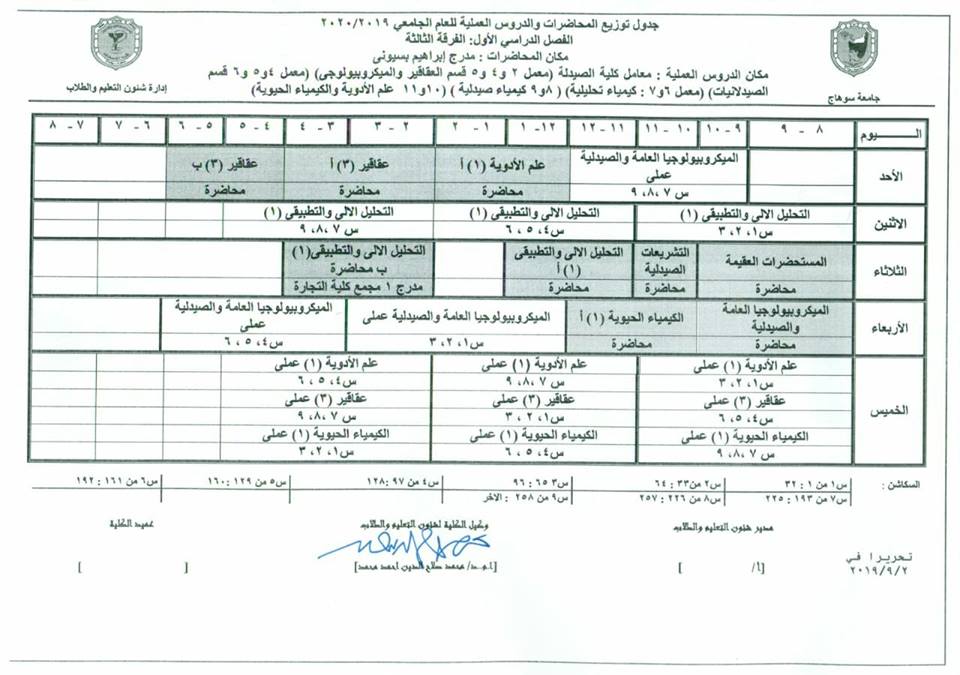 جدول توزيع المحاضرات والدروس العملية للعام الجامعي ٢٠٢٠/٢٠١٩
الفصل الدراسي الأول: الفرقة الثالثة
مكان المحاضرات : مدرج إبراهيم بسيونى
مكان الدروس العملية : معامل كلية الصيدلة (معمل ٢ و٤ و٥ قسم العقاقير والميكروبيولوجى) (معمل ٤و٥ و٦ قسم
الصيدلانيات) (معمل ٦و٧ : كيمياء تحليلية) ( ٨و٩ كيمياء صيدلية ) (١٠و١١ علم الأدوية والكيمياء الحيوية)
جامعة سوهاج
إدارة شئون التعليم والطلاب
اليـــــوم ٨ - ٩ ٩-١٠ ١٠ - ١١ ١١ - ١٢ ١٢- ١ ١ - ٢ ٢ - ٣ ٣ - ٤ ٤ - ٥ ٥ - ٦ ٦ - ٧ ٧ - ٨
الأحد
الميكروبيولوجيا العامة والصيدلية
عملى
س ٧ ،٨ ،٩
علم الأدوية (١) أ
محاضرة
عقاقير (٣) أ
محاضرة
عقاقير (٣) ب
محاضرة
الاثنين
التحليل الالى والتطبيقى (١)
س١، ٢، ٣
التحليل الالى والتطبيقى (١)
س٤، ٥، ٦
التحليل الالى والتطبيقى (١)
س ٧، ٨، ٩
الثلاثاء
المستحضرات العقيمة
محاضرة
التشريعات
الصيدلية
محاضرة
التحليل الالى والتطبيقى
(١) أ
محاضرة
التحليل الالى والتطبيقى(١)
ب محاضرة
مدرج ١ مجمع كلية التجارة
الأربعاء
الميكروبيولوجيا العامة
والصيدلية
محاضرة
الكيمياء الحيوية (١) أ
محاضرة
الميكروبيولوجيا العامة والصيدلية عملى
س١، ٢، ٣
الميكروبيولوجيا العامة والصيدلية
عملى
س٤، ٥، ٦
الخميس
علم الأدوية (١) عملى
س١، ٢، ٣
عقاقير (٣) عملى
س٤، ٥، ٦
الكيمياء الحيوية (١) عملى
س ٧، ٨، ٩
علم الأدوية (١) عملى
س ٧، ٨، ٩
عقاقير (٣) عملى
س١، ٢، ٣
الكيمياء الحيوية (١) عملى
س٤، ٥، ٦
علم الأدوية (١) عملى
س٤، ٥، ٦
عقاقير (٣) عملى
س ٧، ٨، ٩
الكيمياء الحيوية (١) عملى
س١، ٢، ٣
السكاشن : س١ من ١ : ٣٢ س٢ من ٣٣ : ٦٤ س٣ ٦٥ : ٩٦ س٤ من ٩٧ : ١٢٨ س٥ من ١٢٩ : ١٦٠ س٦ من ١٦١ : ١٩٢
س٧ من ١٩٣ : ٢٢٥ س٨ من ٢٢٦ : ٢٥٧ س٩ من ٢٥٨ : الاخر
مدير شئون التعليم والطلاب
وكيل الكلية لشئون التعليم والطلاب
عميد الكلية
تحريرا في
٢٠١٩/٩/٢
[أ/ ]
[ا.م.د/ محمد صلاح الدين احمد محمد]
[ ]